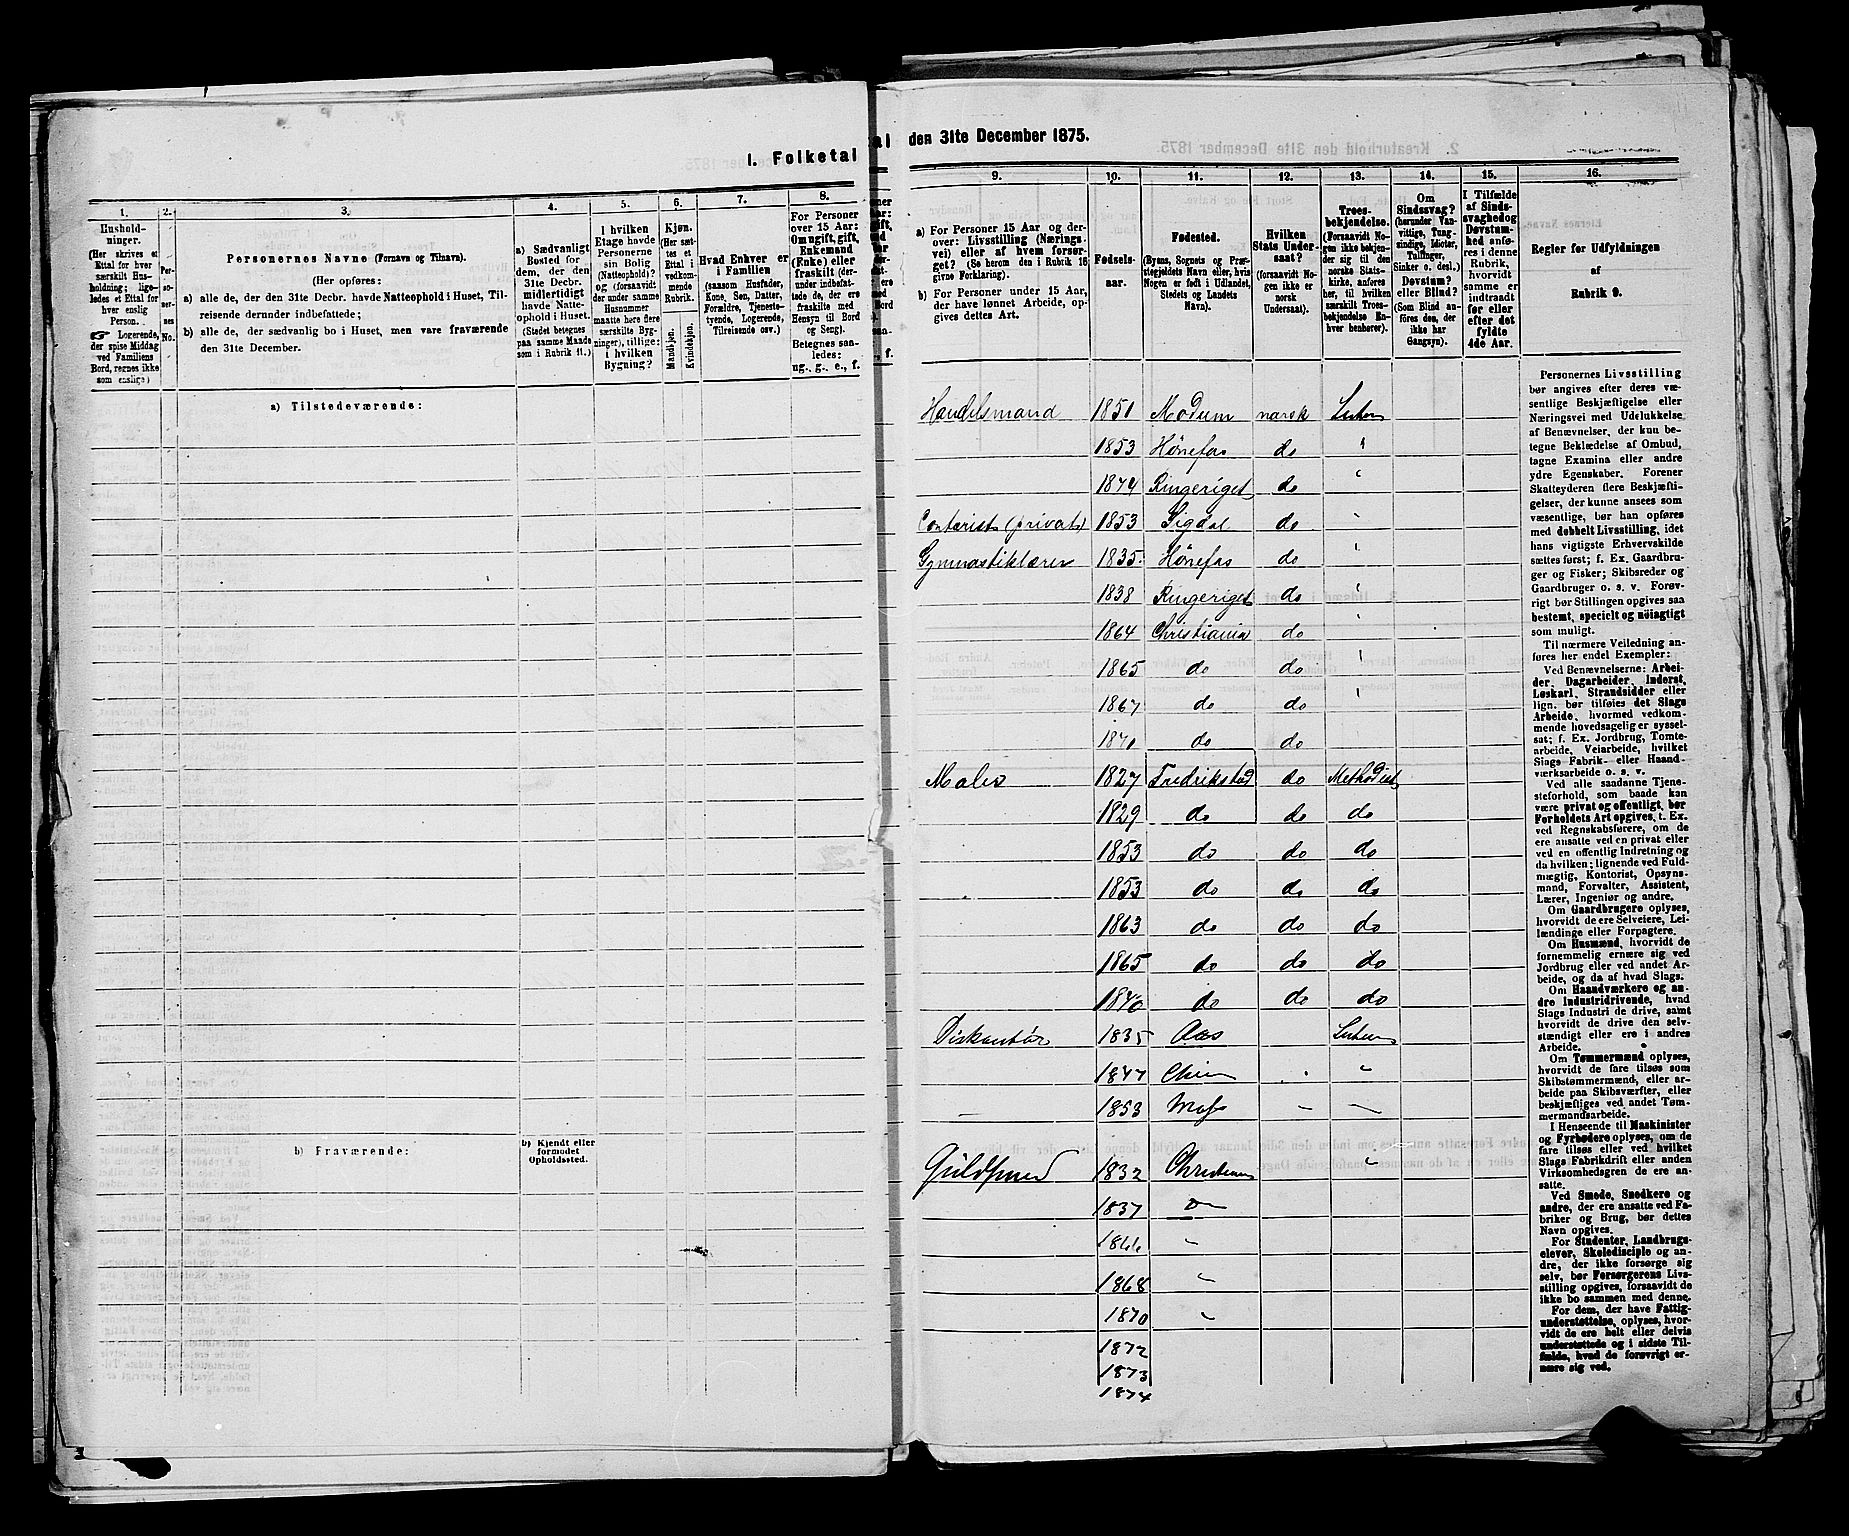 1. Folketal
den 31te December 1875.
1.
Hushold-
ninger.
(Her skrives et
Ettal for hver
særskilt Hus-
holdning; lige-
ledes et Ettal for
hver enslig
Person.
Logerende,
der spise Middag
ved Familiens
Bord, regnes ikke
som enslige)
2.
Per-
so-
ner-
nes
No.
3.
Personernes Navne (Fornavn og Tilnavn).
(Her opføres:
a) alle de, der den 31te Decbr. havde Natteophold i Huset, Til-
reisende derunder indbefattede;
b) alle de, der sædvanlig bo i Huset, men vare fraværende
den 31te December.
4.
a) Sædvanligt
Bosted for
dem, der den
31te Decbr.
midlertidigt
havde Natte-
ophold i Huset.
(Stedet betegnes
paa samme Maade
som i Rubrik 11.)
5.
I hvilken
Etage havde
Personerne
sin Bolig
(Natteophold)?
og (forsaavidt
der under samme
Husnummer
maatte høre flere
særskilte Byg-
ninger), tillige:
i hvilken
Bygning?
6.
Kjøn.
(Her sæt-
tes et
Ettal i
vedkom-
mende
Rubrik.
Mandkjøn.
Kvindekjøn.
7.
Hvad Enhver er
i Familien
(saasom Husfader,
Kone, Søn, Datter,
Forældre, Tjeneste-
tyende, Logerende,
Tilreisende osv.)
8.
For Personer
over 15 Aar:
Om ugift, gift,
Enkemand
(Enke) eller
fraskilt (der-
under indbefat-
tede de, der ere
fraskilte med
Hensyn til Bord
og Seng).
Betegnes saa-
ledes:
ug., g., e., f.
9.
a) For Personer 15 Aar og der-
over: Livsstilling (Nærings-
vei) eller af hvem forsør-
get? (Se herom den i Rubrik 16
givne Forklaring).
b) For Personer under 15 Aar,
der have lønnet Arbeide, op-
gives dettes Art.
10.
Fødsels-
aar.
11.
Fødested.
(Byens, Sognets og Præ-
stegjeldets Navn eller, hvis
Nogen er født i Udlandet,
Stedets og Landets
Navn).
12.
Hvilken
Stats Under-
saat?
(forsaavidt No-
gen ikke er
norsk
Undersaat).
13.
Troes-
bekjendelse.
(Forsaavidt No-
gen ikke bekjen-
der sig til den
norske Stats-
kirke, anføres
her, til hvilken
særskilt Troes-
bekjendelse En-
hver henhører).
14.
Om
Sindssvag?
(herunder Van-
vittige, Tung-
sindige, Idioter,
Tullinger,
Sinker o. desl.)
Døvstum?
eller Blind?
(Som Blind an-
føres den, der
ikke har
Gangsyn).
15.
I Tilfælde
af Sinds-
svaghed og
Døvstum-
hed anfø-
res i denne
Rubrik,
hvorvidt
samme er
indtraadt
før eller
efter det
fyldte
4de Aar.
16.
Regler for Udfyldningen
af
Rubrik 9.
a) Tilstedeværende:
Handelsmand 1850 Modum norsk Luther
1853 Hønefos do "
1874 Ringeriget do "
Contorist (privat) 1853 Sigdal do "
Gymnastiklærer 1835 Hønefos do "
1838 Ringeriget do "
1864 Christiania do "
1865 do do "
1867 do do "
1870 do do
Maler 1827 Fredrikstad do Methodist
1829 do do do
1853 do do do
1853 do do do
1863 do do do
1865 do do do
1840 do do do
1835 Aas Luther
1847 Chria "
1853 Moss — —
b) Fraværende:
b) Kjendt eller
formodet
Opholdssted.
Guldsmed 1832 Christiania "
1837 do
1866 "
1868 "
1870 "
1872
1873
1874
Personernes Livsstilling
bør angives efter deres væ-
sentlige Beskjæftigelse eller
Næringsvei med Udelukkelse
af Benævnelser, der kun be-
tegne Beklædelse af Ombud,
tagne Examina eller andre
ydre Egenskaber. Forener
Skatteyderen flere Beskjæfti-
gelser, der kunne ansees som
væsentlige, bør han opføres
med dobbelt Livsstilling, idet
hans vigtigste Erhvervskilde
sættes først; f. Ex. Gaardbru-
ger og Fisker; Skibsreder og
Gaardbruger o. s. v. Forøv-
rigt bør Stillingen opgives saa
bestemt, specielt og nøiagtigt
som muligt.
Til nærmere Veiledning an-
føres her endel Exempler:
Ved Benævnelserne: Arbei-
der, Dagarbeider, Inderst,
Løskarl, Strandsidder eller
lign. bør tilføies det Slags
Arbeide, hvormed vedkom-
mende hovedsagelig er syssel-
sat; f. Ex. Jordbrug, Tomte-
arbeide, Veiarbeide, hvilket
Slags Fabrik- eller Haand-
værksarbeide o. s. v.
Ved alle saadanne Tjene-
steforhold, som baade kan
være privat og offentligt, bør
Forholdets Art opgives, t. Ex.
ved Regnskabsførere, om de
ere ansatte ved en privat eller
ved en offentlig Indretning og
da hvilken; lignende ved Fuld-
mægtig, Kontorist, Opsyns-
mand, Forvalter, Assistent,
Lærer, Ingeniør og andre.
Om Gaardbrugere oplyses,
hvorvidt de ere Selveiere, Lei-
lændinge eller Forpagtere.
Om Husmænd, hvorvidt de
fornemmelig ernære sig ved
Jordbrug eller ved andet Ar-
beide, og da af hvad Slags.
Om Haandværkere og an-
dre Industridrivende, hvad
Slags Industri de drive, samt
hvorvidt de drive den selv-
stændigt eller ere i andres
Arbeide.
Om Tømmermænd oplyses,
hvorvidt de fare tilsøs som
Skibstømmermænd, eller ar-
beide paa Skibsværfter, eller
beskjæftiges ved andet Tøm-
mermandsarbeide.
I Henseende til Maskinister
og Fyrbødere oplyses, om de
fare tilsøs eller ved hvilket
Slags Fabrikdrift eller anden
Virksomhedsgren de ere an-
satte.
Ved Smede, Snedkere og
andre, der ere ansatte ved Fa-
briker og Brug, bør dettes
Navn opgives.
For Studenter, Landbrugs-
elever, Skoledisciple og an-
dre, der ikke forsørge sig
selv, bør Forsørgerens Livs-
stilling opgives, forsaavidt de
ikke bo sammen med denne.
For dem, der have Fattig-
understøttelse, oplyses, hvor-
vidt de ere helt eller delvis
understøttede og i sidste Til-
fælde, hvad de forøvrigt er-
nære sig ved.